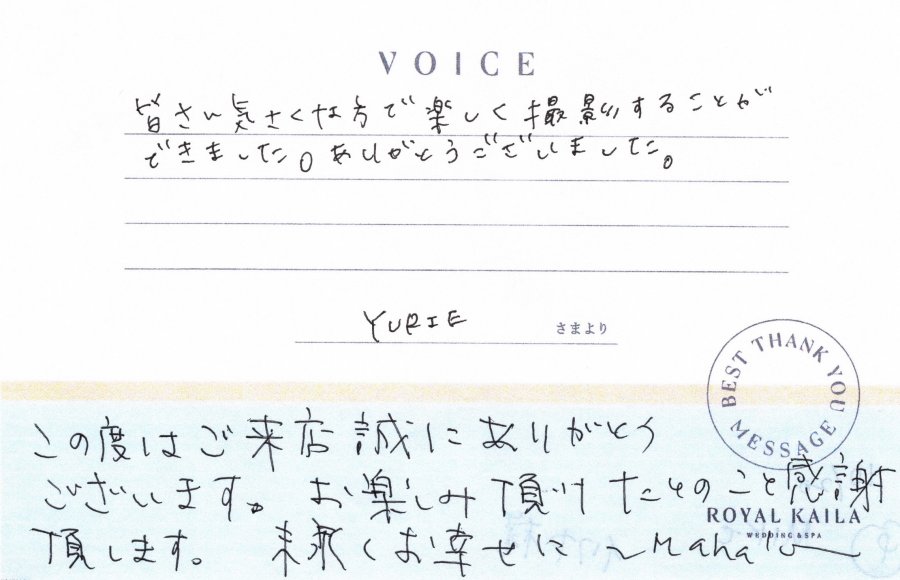 VOICE
皆さん気さくな方で楽しく撮影することが
できました。ありがとうございました。
YURIE さまより
BEST THANK YOU MESSAGE
この度はご来店誠にありがとう
ございます。お楽しみ頂けたとのこと感謝
頂します。末永くお幸せに ~Maha~
ROYAL KAILA
WEDDING & SPA